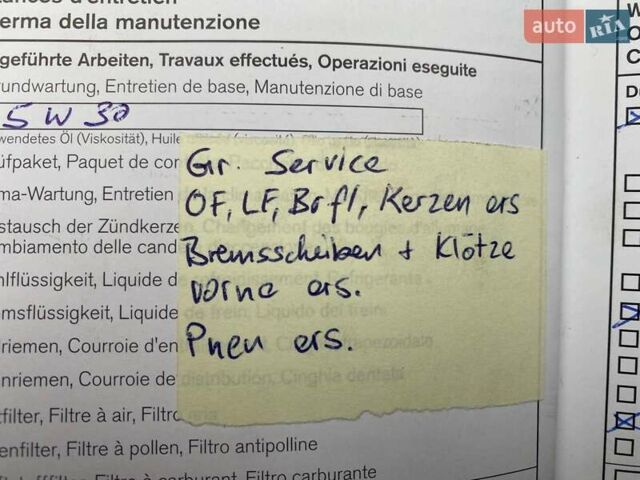 erma della manutenzione
geführte Arbeiten, Travaux effectués, Operazioni eseguite
rundwartung, Entretien de base, Manutenzione di base
5 W 30
wendetes Öl (Viskosität), Huile
üfpaket, Paquet de cor
ma-Wartung, Entretien
stausch der Zündkerzen
ambiamento delle cand
hlflüssigkeit, Liquide
msflüssigkeit, Liquide
riemen, Courroie d'en
nriemen, Courroie de distribution, Cinghia dentata
tfilter, Filtre à air, Filtro
enfilter, Filtre à pollen, Filtro antipolline
Filtre à carburant, Filtro carburante
Gr. Service
ÖF, LF, Brfl, Kerzen ers
Bremsscheiben + Klötze
vorne ers.
Pneu ers.
auto RIA